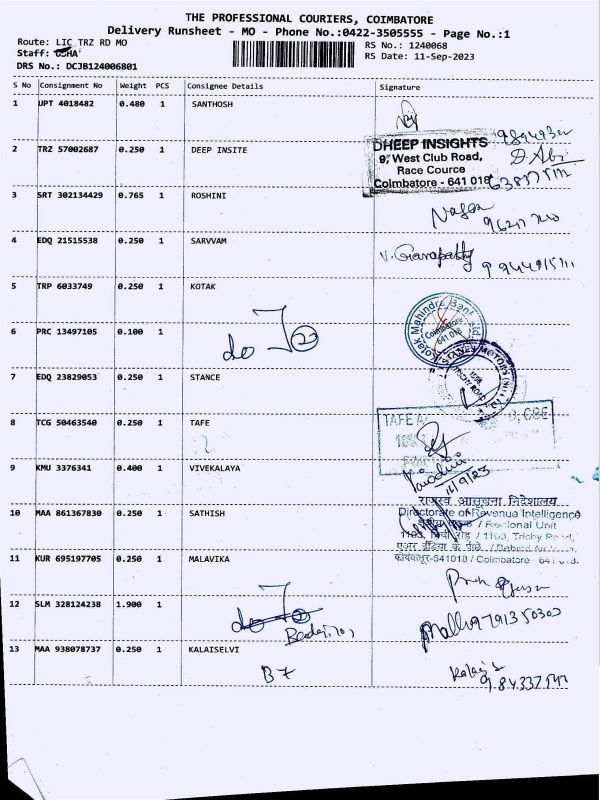 THE PROFESSIONAL COURIERS, COIMBATORE
Delivery Runsheet - MO - Phone No.:0422-3505555 - Page No.:1
Route: LIC TRZ RD MO
RS No.: 1240068
Staff: USHA
RS Date: 11-Sep-2023
DRS No.: DCJB124006801
S No Consignment No Weight PCS Consignee Details Signature
1 UPT 4018482 0.480 1 SANTHOSH
DHEEP INSIGHTS
9, West Club Road,
Race Cource
Coimbatore - 641 018
2 TRZ 57002687 0.250 1 DEEP INSITE
D. Abi
3 SRT 302134429 0.765 1 ROSHINI
4 EDQ 21515538 0.250 1 SARVVAM
V. Ganapathy
5 TRP 6033749 0.250 1 KOTAK
Kotak Mahindra Bank Ltd
Coimbatore
641 018
6 PRC 13497105 0.100 1
do
7 EDQ 23829053 0.250 1 STANCE
STANEY MOTORS
8 TCG 50463540 0.250 1 TAFE
TAFE
CBE
9 KMU 3376341 0.400 1 VIVEKALAYA
11/9/23
राजस्व आसूचना निदेशालय
Directorate of Revenue Intelligence
10 MAA 861367830 0.250 1 SATHISH
/ Regional Unit
/ 1103, Trichy Road,
641018 / Coimbatore - 641
11 KUR 695197705 0.250 1 MALAVIKA
12 SLM 328124238 1.900 1
do
9791350300
13 MAA 938078737 0.250 1 KALAISELVI
B7